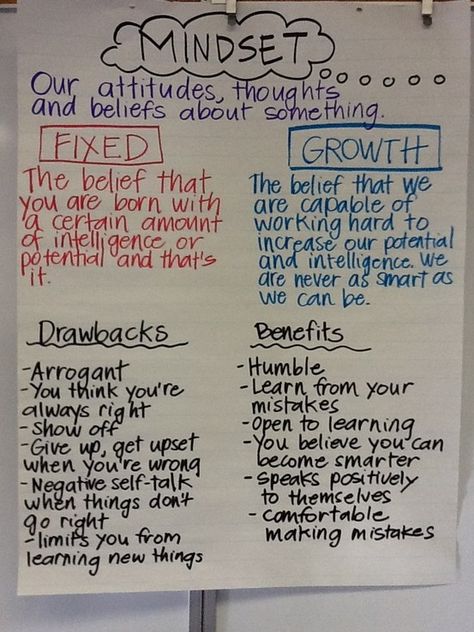 MINDSET
Our attitudes, thoughts
and beliefs about something.
FIXED
The belief that
you are born with
a certain amount
of intelligence or
potential and that's
it.
GROWTH
The belief that we
are capable of
working hard to
increase our potential
and intelligence. We
are never as smart as
we can be.
Drawbacks
- Arrogant
- You think you're
always right
- Show off
- Give up, get upset
when you're wrong
- Negative self-talk
when things don't
go right
- limits you from
learning new things
Benefits
- Humble
- Learn from your
mistakes
- Open to learning
- You believe you can
become smarter
- Speaks positively
to themselves
- Comfortable
making mistakes